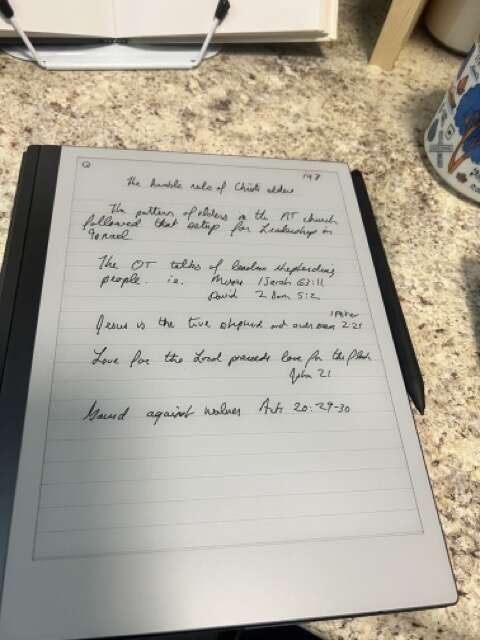 197
The humble rule of Christ's elders
The pattern of elders in the NT church
followed that setup for Leadership in
Israel
The OT talks of leaders shepherding
people. i.e. Moses Isaiah 63:11
David 2 Sam 5:2
1 Peter
Jesus is the true shepherd and overseer 2:25
Love for the Lord precedes love for the flock
John 21
Guard against wolves Acts 20:29-30